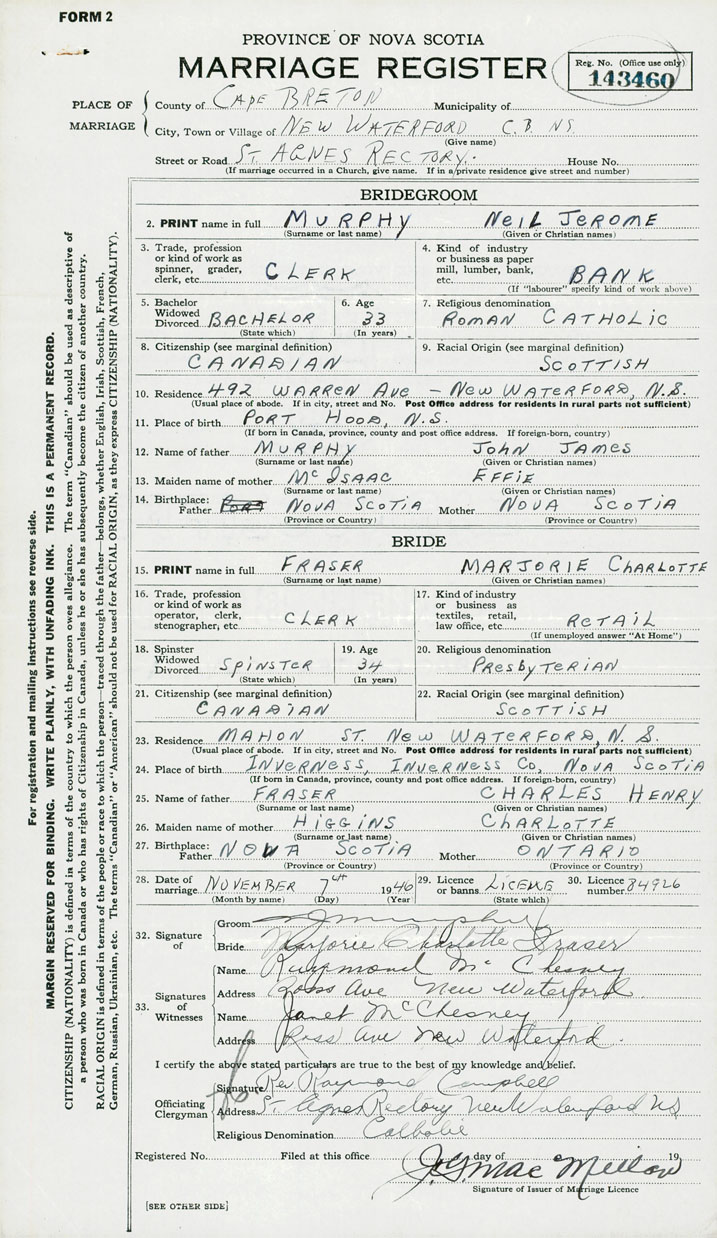 FORM 2
PROVINCE OF NOVA SCOTIA
MARRIAGE REGISTER
Reg. No. (Office use only)
143460
PLACE OF MARRIAGE
County of CAPE BRETON Municipality of
City, Town or Village of NEW WATERFORD C.B. NS.
(Give name)
Street or Road ST. AGNES RECTORY. House No.
(If marriage occurred in a Church, give name. If in a private residence give street and number)
BRIDEGROOM
2. PRINT name in full MURPHY NEIL JEROME
(Surname or last name) (Given or Christian names)
3. Trade, profession or kind of work as spinner, grader, clerk, etc. CLERK
4. Kind of industry or business as paper mill, lumber, bank, etc. BANK
(If "labourer" specify kind of work above)
5. Bachelor Widowed Divorced BACHELOR
(State which)
6. Age 33
(In years)
7. Religious denomination
ROMAN CATHOLIC
8. Citizenship (see marginal definition)
CANADIAN
9. Racial Origin (see marginal definition)
SCOTTISH
10. Residence 492 WARREN AVE - NEW WATERFORD, N.S.
(Usual place of abode. If in city, street and No. Post Office address for residents in rural parts not sufficient)
11. Place of birth PORT HOOD, N.S.
(If born in Canada, province, county and post office address. If foreign-born, country)
12. Name of father MURPHY JOHN JAMES
(Surname or last name) (Given or Christian names)
13. Maiden name of mother McISAAC EFFIE
(Surname or last name) (Given or Christian names)
14. Birthplace: Father NOVA SCOTIA Mother NOVA SCOTIA
(Province or Country) (Province or Country)
BRIDE
15. PRINT name in full FRASER MARJORIE CHARLOTTE
(Surname or last name) (Given or Christian names)
16. Trade, profession or kind of work as operator, clerk, stenographer, etc. CLERK
17. Kind of industry or business as textiles, retail, law office, etc. RETAIL
(If unemployed answer "At Home")
18. Spinster Widowed Divorced SPINSTER
(State which)
19. Age 34
(In years)
20. Religious denomination
PRESBYTERIAN
21. Citizenship (see marginal definition)
CANADIAN
22. Racial Origin (see marginal definition)
SCOTTISH
23. Residence MAHON ST. NEW WATERFORD, N.S.
(Usual place of abode. If in city, street and No. Post Office address for residents in rural parts not sufficient)
24. Place of birth INVERNESS, INVERNESS CO, NOVA SCOTIA
(If born in Canada, province, county and post office address. If foreign-born, country)
25. Name of father FRASER CHARLES HENRY
(Surname or last name) (Given or Christian names)
26. Maiden name of mother HIGGINS CHARLOTTE
(Surname or last name) (Given or Christian names)
27. Birthplace: Father NOVA SCOTIA Mother ONTARIO
(Province or Country) (Province or Country)
28. Date of marriage NOVEMBER 7th 1946
(Month by name) (Day) (Year)
29. Licence or banns LICENSE
(State which)
30. Licence number 84926
32. Signature of
Groom J Murphy
Bride Marjorie Charlotte Fraser
33. Signatures of Witnesses
Name Raymond McChesney
Address Ross Ave New Waterford
Name Janet McChesney
Address Ross Ave New Waterford.
I certify the above stated particulars are true to the best of my knowledge and belief.
Officiating Clergyman
Signature Rev Raymond Campbell
Address St. Agnes Rectory New Waterford NS
Religious Denomination Catholic
Registered No. Filed at this office day of 19
Signature of Issuer of Marriage Licence
[SEE OTHER SIDE]
For registration and mailing instructions see reverse side.
MARGIN RESERVED FOR BINDING. WRITE PLAINLY, WITH UNFADING INK. THIS IS A PERMANENT RECORD.
CITIZENSHIP (NATIONALITY) is defined in terms of the country to which the person owes allegiance. The term "Canadian" should be used as descriptive of
a person who was born in Canada or who has rights of Citizenship in Canada, unless he or she has subsequently become the citizen of another country.
RACIAL ORIGIN is defined in terms of the people or race to which the person—traced through the father—belongs, whether English, Irish, Scottish, French,
German, Russian, Ukrainian, etc. The terms "Canadian" or "American" should not be used for RACIAL ORIGIN, as they express CITIZENSHIP (NATIONALITY).